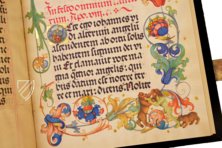 In festo omnium sanctorum
Apo. vii
st ego iohannes vi
di alterum angelū
ascendentem ab ortu solis
habentem signum dei vi
vi Et clamavit voce ma
gna quatuor angelis: qui
bus datum est nocere terre
et mari: dicens. Nolite